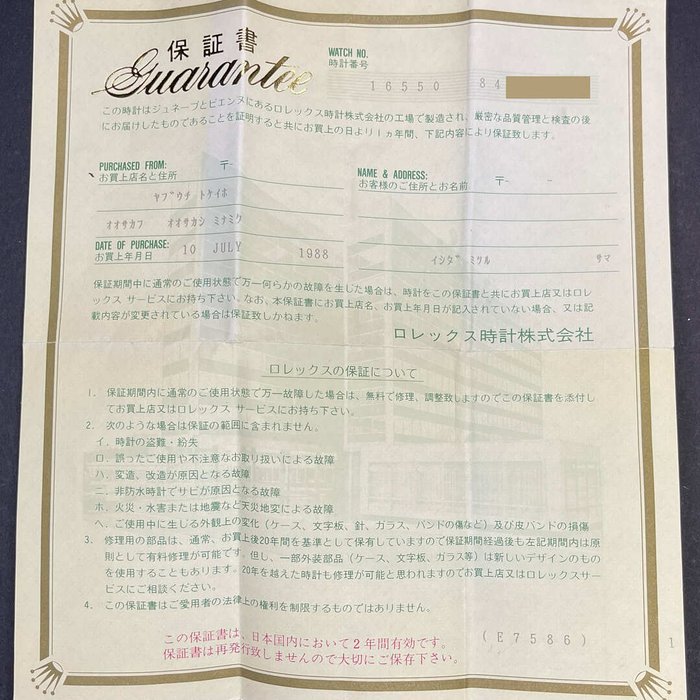 保証書
Guarantee
WATCH NO.
時計番号
16550 84
この時計はジュネーブとビエンヌにあるロレックス時計株式会社の工場で製造され、厳密な品質管理と検査の後
にお届けしたものであることを証明すると共にお買上の日より1ヵ年間、下記内容により保証致します。
PURCHASED FROM:
お買上店名と住所
〒-
ヤブウチ トケイホ
オオサカフ オオサカシ ミナミク
DATE OF PURCHASE:
お買上年月日
10 JULY 1988
NAME & ADDRESS:
お客様のご住所とお名前
〒- -
イシダ ミツル サマ
保証期間中に通常のご使用状態で万一何らかの故障を生じた場合は、時計をこの保証書と共にお買上店又はロレ
ックス サービスにお持ち下さい。なお、本保証書にお買上店名、お買上年月日が記入されていない場合、又は記
載内容が変更されている場合は保証致しかねます。
ロレックス時計株式会社
ロレックスの保証について
1. 保証期間内に通常のご使用状態で万一故障した場合は、無料で修理、調整致しますのでこの保証書を添付し
てお買上店又はロレックス サービスにお持ち下さい。
2. 次のような場合は保証の範囲に含まれません。
イ. 時計の盗難・紛失
ロ. 誤ったご使用や不注意なお取り扱いによる故障
ハ. 変造、改造が原因となる故障
ニ. 非防水時計でサビが原因となる故障
ホ. 火災・水害または地震など天災地変による故障
ヘ. ご使用中に生じる外観上の変化(ケース、文字板、針、ガラス、バンドの傷など)及び皮バンドの損傷
3. 修理用の部品は、通常、お買上後20年間を基準として保有していますので保証期間経過後も左記期間内は原
則として有料修理が可能です。但し、一部外装部品(ケース、文字板、ガラス等)は新しいデザインのもの
を使用することもあります。20年を越えた時計も修理が可能と思われますのでお買上店又はロレックスサー
ビスにご相談ください。
4. この保証書はご愛用者の法律上の権利を制限するものではありません。
この保証書は、日本国内において2年間有効です。
保証書は再発行致しませんので大切にご保存下さい。
(E7586)
1